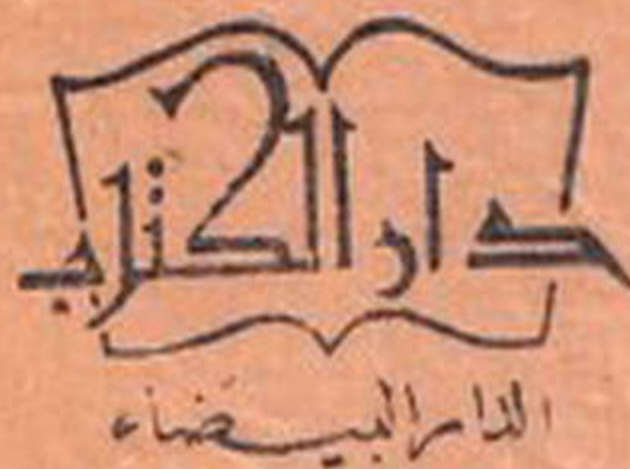 دار الكتاب
الدار البيضاء